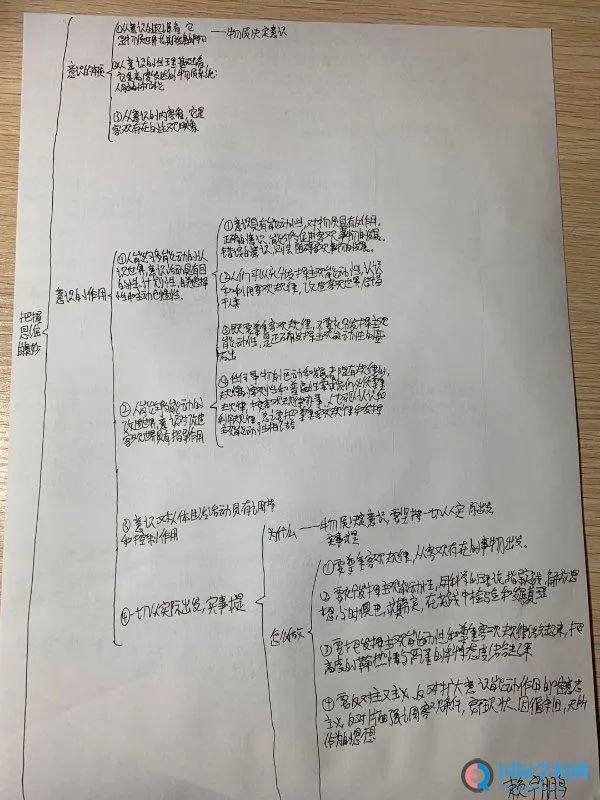 把握
思维
的奥妙
意识的本质
①从意识的起源看,它
是物质世界长期发展的产物
——物质决定意识
②从意识的生理基础看,
它是高度发达的物质系统:
人脑的机能
③从意识的内容看,它是
客观存在的主观映象
意识的作用
①人能够能动的认
识世界,意识活动具有目
的性、计划性,自觉选择
性和主动创造性。
①意识具有能动作用,对物质具有反作用,
正确的意识,能够促进客观事物的发展,
错误的意识,则会阻碍客观事物的发展。
②人们可以充分发挥主观能动性,认识
和利用客观规律,改造客观世界,
③既要尊重客观规律,不要充分发挥主观
能动性,是正确发挥主观能动性的
②人能够能动的
改造世界,意识对改造
客观世界具有指导作用
③意识对人体生活活动具有调节
和控制作用
④一切从实际出发,实事求是
为什么
——物质决定意识,要坚持一切从实际出发,
实事求是
怎么做
①要尊重客观规律,从客观存在的事物出发。
②要充分发挥主观能动性,用科学的理论指导实践,解放思
想,与时俱进,求真务实,在实践中检验和发展真理
③要把发挥主观能动性和尊重客观规律结合起来,把
高度的革命热情与严谨的科学态度结合起来
④要反对主观主义,反对夸大意识能动作用的唯意志
主义,反对片面强调客观条件,安于现状、因循守旧、无所
作为的思想
国际学校网